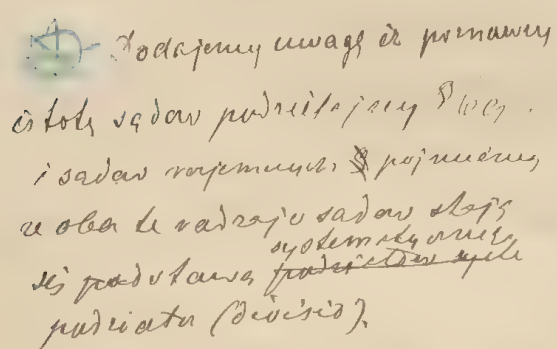 Dodajemy uwagę iż poznawszy
istotę sądów podzielającej
i sądów wzajemnych pojmiemy
że oba te rodzaje sądów stają
systematycznego
się podstawą
podziału (divisio).